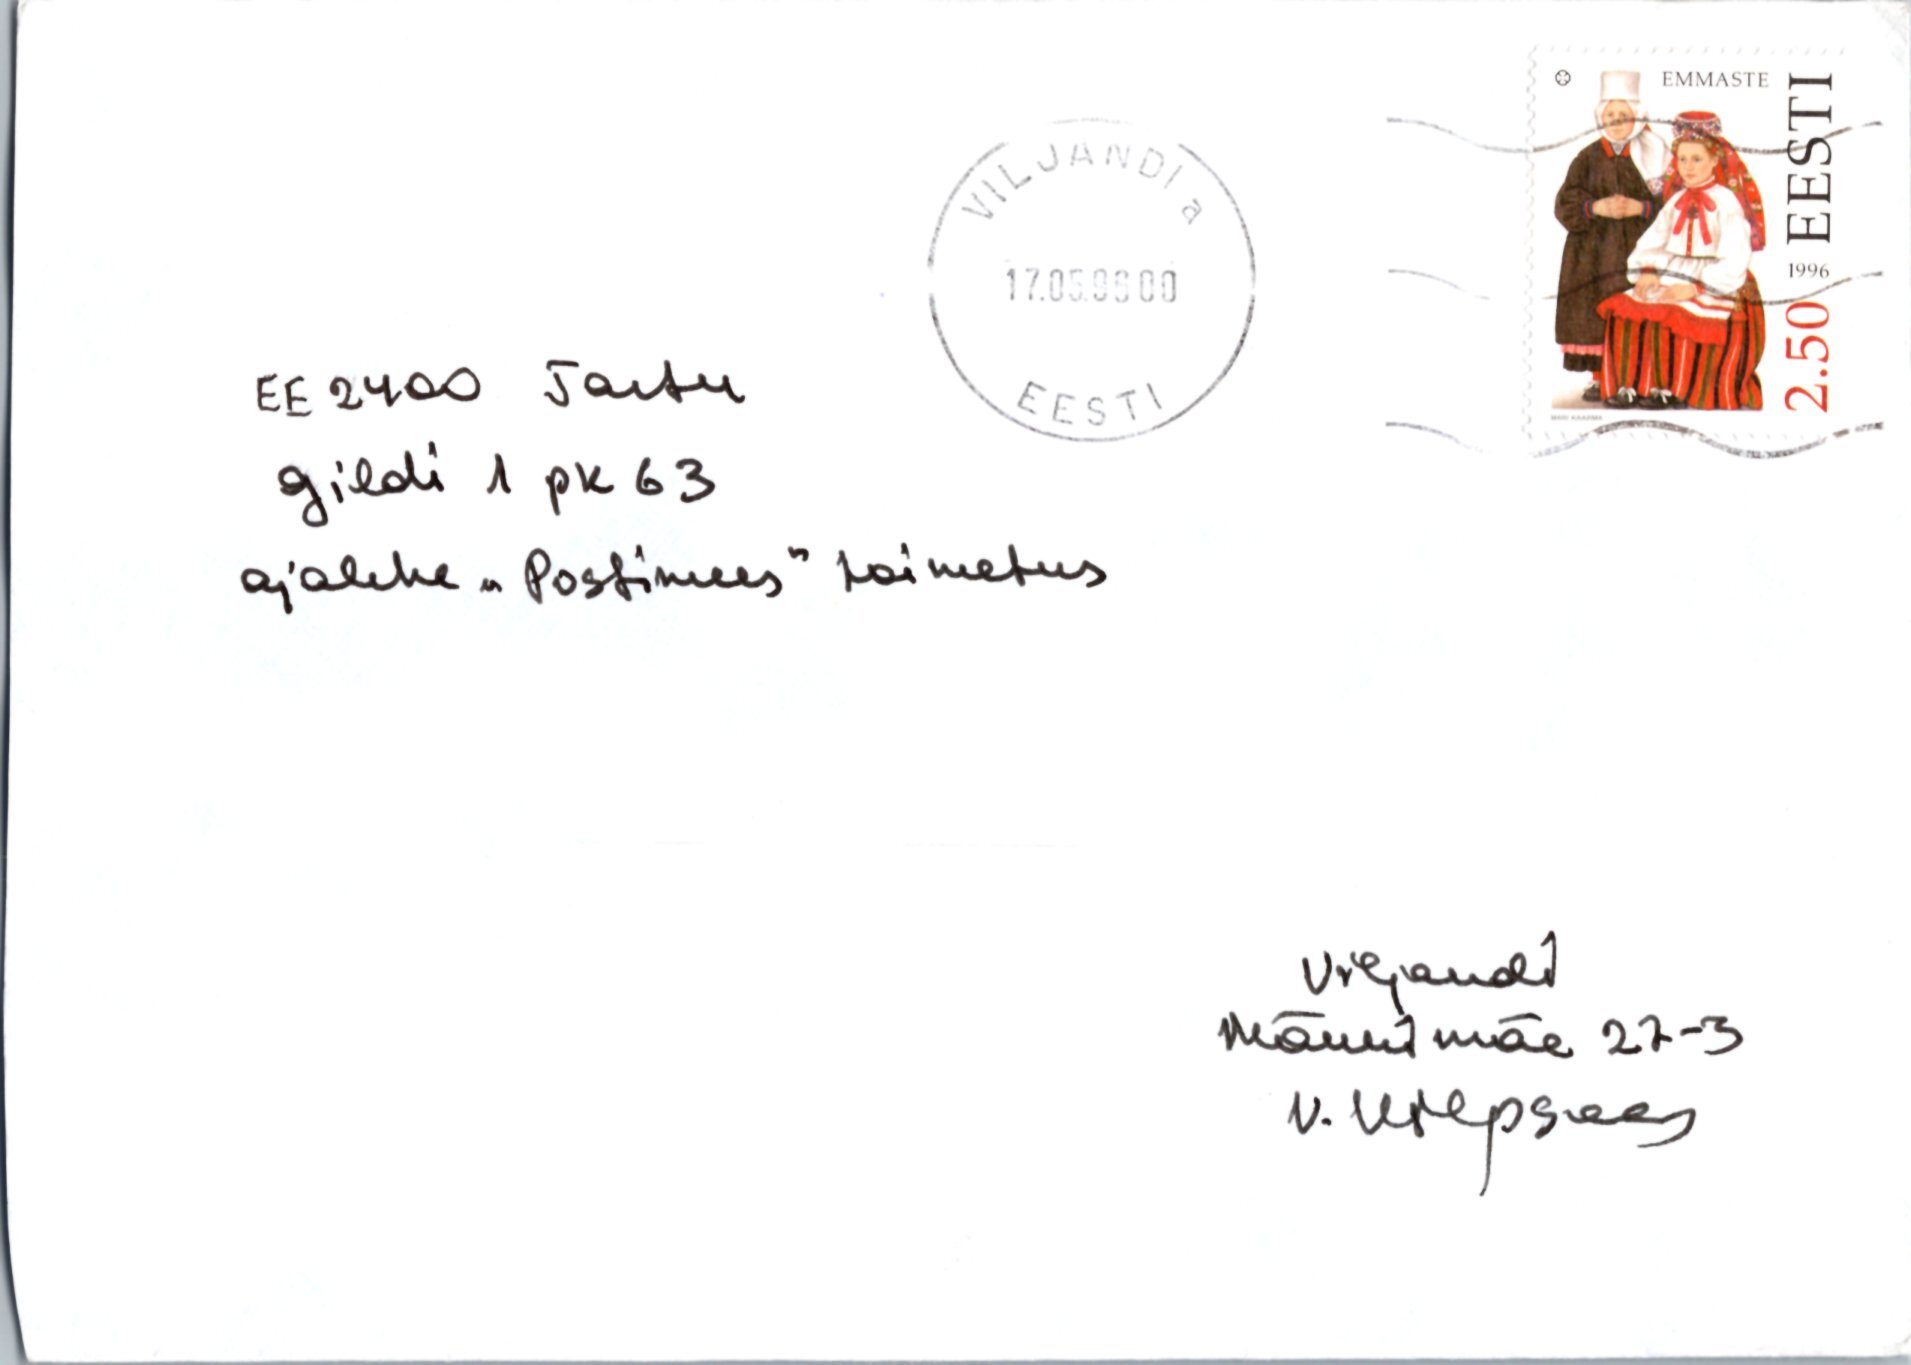 EMMASTE
EESTI
1996
2.50
MARI KAARMA
VILJANDI a
17.05.96 00
EESTI
EE 2400 Tartu
Gildi 1 pk 63
ajalehe „Postimees" toimetus
Viljandi
Männimäe 27-3
V.